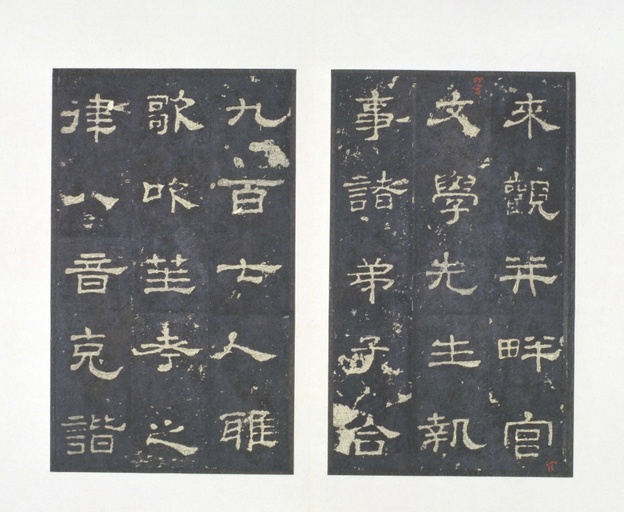 來觀并畔官
文學先生執
事諸弟子合
九百七人雅
歌吹笙考之
律八音克諧